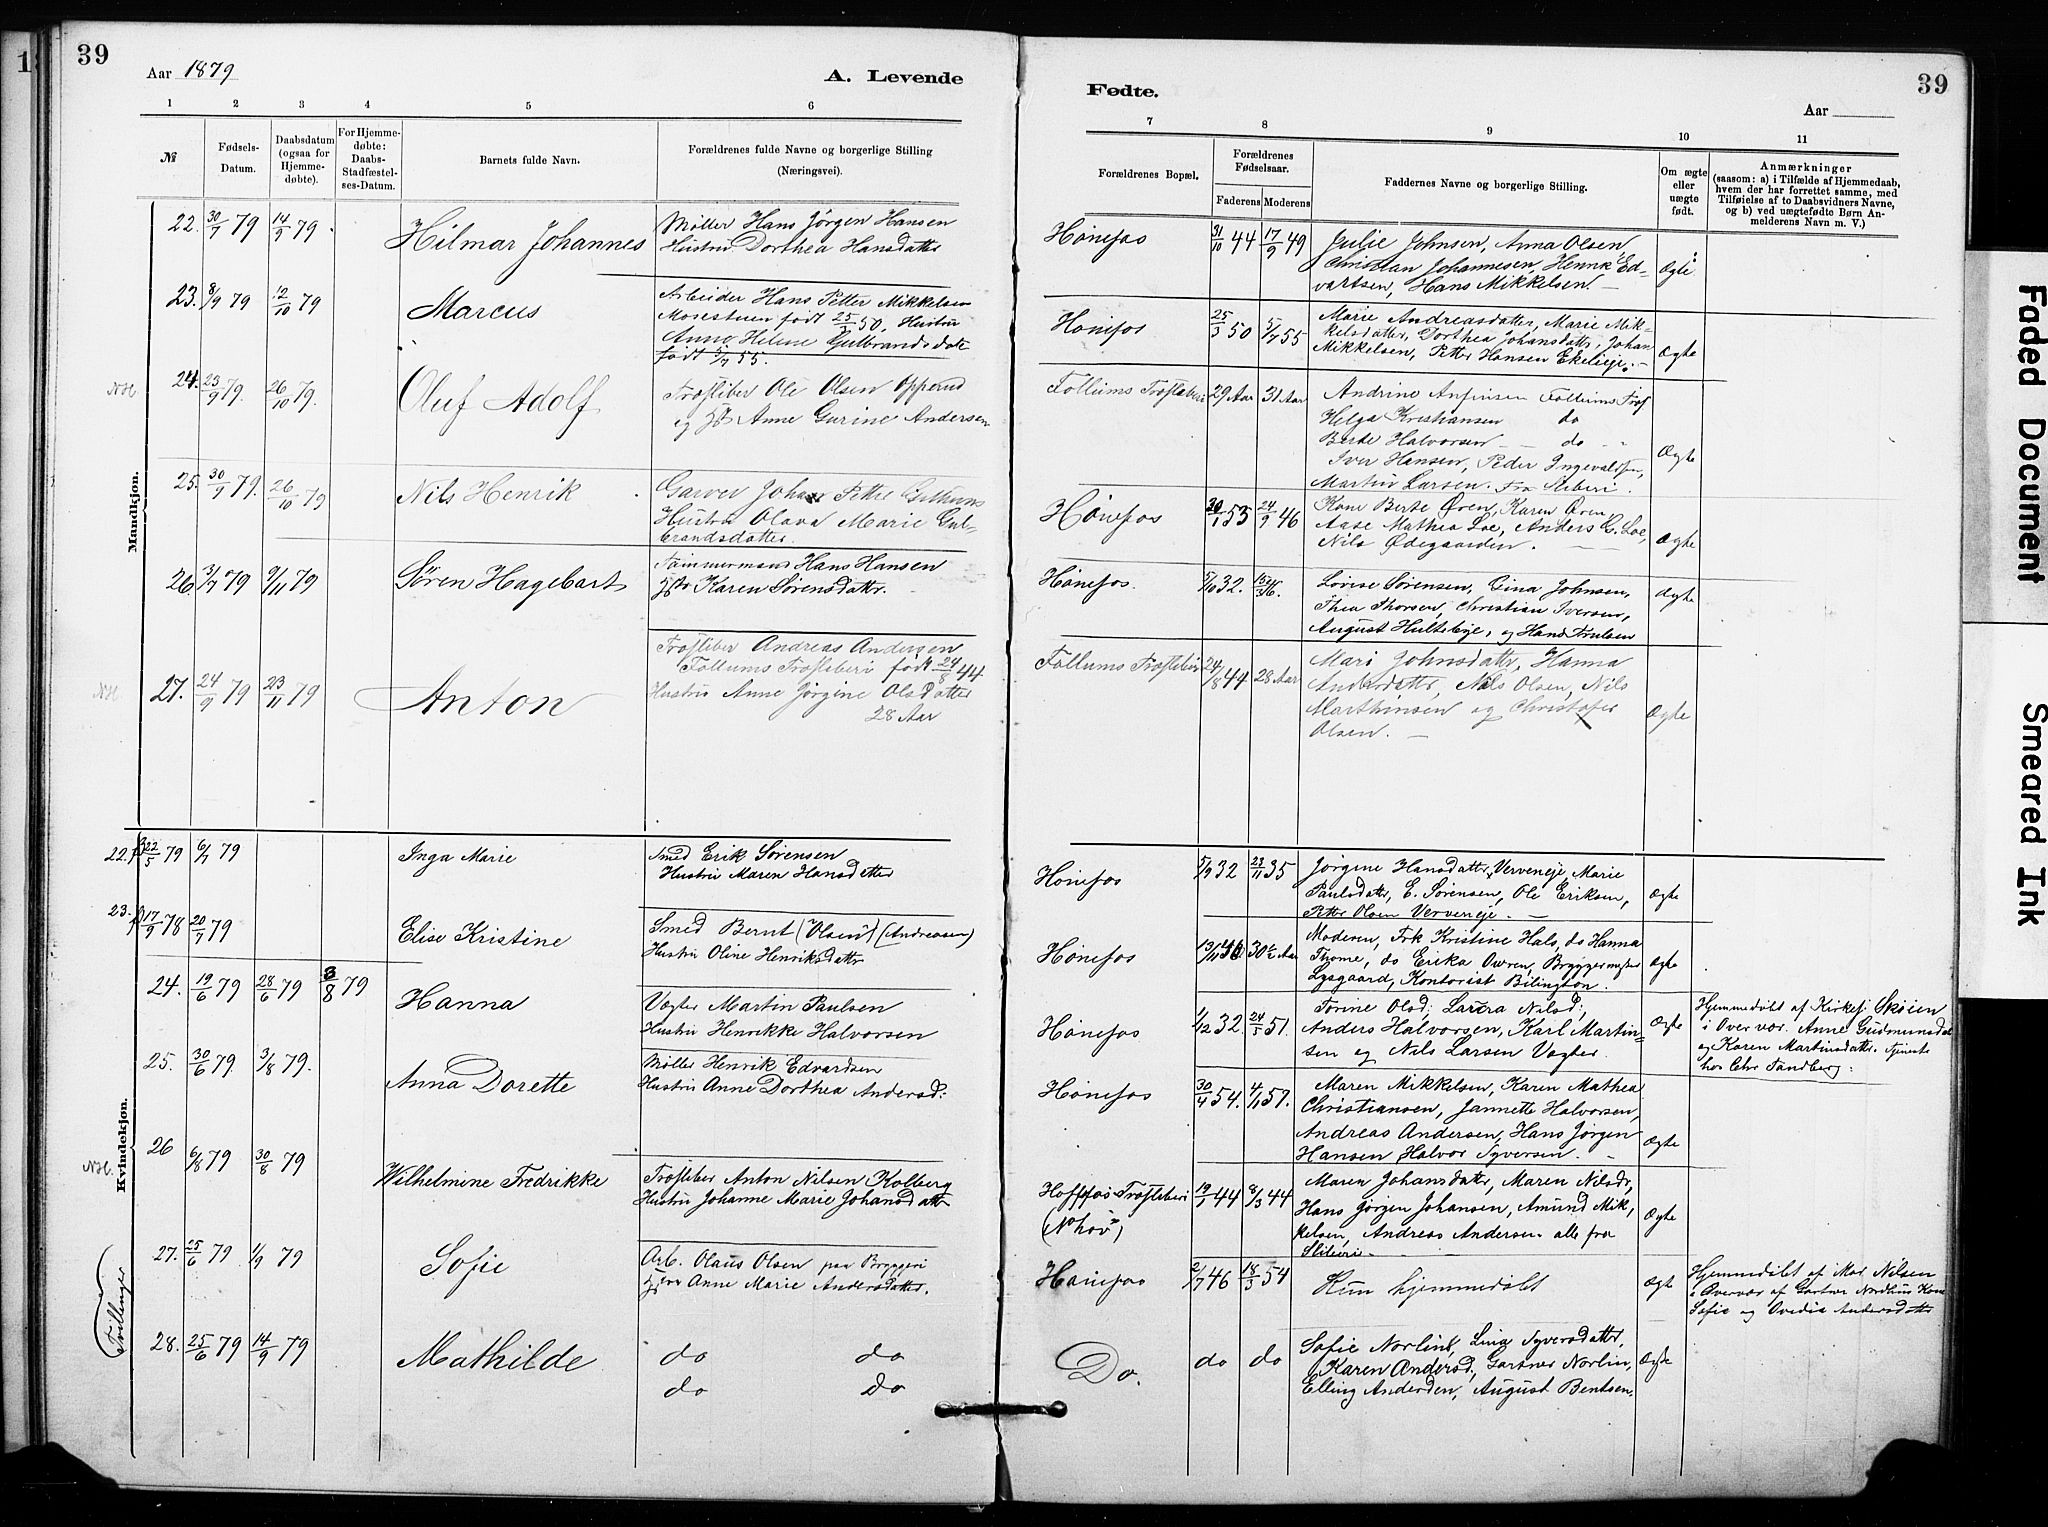 39
Aar 1879
A. Levende
Fødte.
39
Aar
1 2 3 4 5 6 7 8 9 10 11
№
Fødsels-
Datum.
Daabsdatum
(ogsaa for
Hjemme-
døbte).
For Hjemme-
døbte:
Daabs-
Stadfæstel-
ses-Datum.
Barnets fulde Navn.
Forældrenes fulde Navne og borgerlige Stilling
(Næringsvei).
Forældrenes Bopæl.
Forældrenes
Fødselsaar.
Faderens Moderens
Faddernes Navne og borgerlige Stilling.
Om ægte
eller
uægte
født.
Anmærkninger
(saasom: a) i Tilfælde af Hjemmedaab,
hvem der har forrettet samme, med
Tilføielse af to Daabsvidners Navne,
og b) ved uægtefødte Børn An-
melderens Navn m. V.)
Mandkjøn.
22. 30/7 79 14/9 79
Hilmar Johannes
Møller Hans Jørgen Hansen
Hustru Dorthea Hansdatter
Hønefos
31/10 44 17/9 49
Julie Johnsen, Anna Olsen,
Christian Johannesen, Henrik Ed-
vartsen, Hans Mikkelsen
Ægte
23. 8/9 79 12/10 79
Marcus
Arbeider Hans Petter Mikkelsen
Mosestuen født 25/3 50, Hustru
Anne Helene Gulbrandsdatr
født 5/7 55.
Hønefos
25/3 50 5/7 55
Marie Andreasdatter, Marie Mik-
kelsdatter, Dorthea Johansdatter, Johan
Mikkelsen, Petter Hansen Ekelieje.
Ægte
NH. 24. 23/9 79. 26/10 79.
Oluf Adolf
Træsliber Ole Olsen Opperud
og Anne Gurine Andersen
Follums Træsliberi
29 Aar 31 Aar
Andrine Anfinsen Follums Træs
Helga Kristiansen do
Berte Halvorsen do
Iver Hansen, Peder Ingevaldsen,
Martin Larsen. Fra Sliberi.
Ægte
25. 30/9 79. 26/10 79
Nils Henrik
Garver Johan Petter
Hustru Olava Marie Gul-
brandsdatter.
Hønefos
53 24/9 46
Kone Berte Øren, Karen Øren
Aase Mathea Loe, Anders G. Loe,
Nils Ødegaarden.
Ægte
26. 31/7 79 9/11 79
Søren Hagebart
Tømmermand Hans Hansen
Karen Sørensdatter.
Hønefos.
5/10 32.
Lovise Sørensen, Gina Johnsen,
Thea Thorsen, Christian Iversen,
August Hultebye, og Hans Trulsen
Ægte
NH 27. 24/9 79 23/11 79
Anton
Træsliber Andreas Andersen
Follums Træsliberi født 24/8 44
Hustru Anne Jørgine Olsdatter
28 Aar
Follums Træsliberi
24/8 44 28 Aar
Mari Johnsdatter, Hanna
Andersdatter, Nils Olsen, Nils
Marthinsen og Christofer
Olsen.
Ægte
Kvindekjøn.
22. 22/5 79 6/7 79
Inga Marie
Smed Erik Sørensen
Hustru Maren Hansdatter
Hønefos
5/9 32 23/11 35
Jørgine Hansdatter Verveneje, Marie
Paulsdatter, E. Sørensen, Ole Eriksen,
Petter Olsen Verveneje.
Ægte
23. 17/9 78 20/7 79
Elise Kristine
Smed Bernt (Olsen) (Andreasen)
Hustru Oline Henriksdatter
Hønefos
30½ Aar
Moderen, Frk Kristine Hals, do Hanna
Thome, do Erika Owren, Bryggermester
Lysgaard, Kontorist Bilington.
Ægte
24. 19/6 79 28/6 79 3/8 79
Hanna
Vægter Martin Paulsen
Hustru Henrikke Halvorsen
Hønefos
1/12 32. 24/5 51.
Torine Olsd; Laura Nilsd;
Anders Halvorsen, Karl Martin-
sen og Nils Larsen Vægter.
Ægte
Hjemmedøbt af Kirkesj Skøien
i Overvær. Anne Gudmundsdat
og Karen Martinsdatter. Tjenende
hos Chr Sandberg.
25. 30/6 79. 3/8 79.
Anna Dorette
Møller Henrik Edvardsen
Hustru Anne Dorthea Andersd:
Hønefos
30/4 54. 4/11 57.
Maren Mikkelsen, Karen Mathea
Christiansen, Jannette Halvorsen,
Andreas Andersen, Hans Jørgen
Hansen Halvor Syversen.
Ægte
NH. 26 6/8 79 30/8 79
Wilhelmine Fredrikke
Træsliber Anton Nilsen Kolberg
Hustru Johanne Marie Johansdatter
Hoffsfos Træsliberi
(Nohov)
19/1 44 8/3 44
Maren Johansdatter, Maren Nilsdr,
Hans Jørgen Johansen, Amund Mik,
kelsen, Andreas Andersen alle fra
Sliberi
Ægte
Tvillinger
27. 25/6 79 1/9 79
Sofie
Arb. Olaus Olsen paa Bryggeri
Anne Marie Andersdatter.
Hønefos
2/7 46 18/3 54
Kun hjemmedøbt
Ægt
Hjemmedøbt af Mad. Nilsen
i Overvær af Gartner Nordlins Kone
Sofie og Ovidia Andersdatter
28. 25/6 79 14/9 79
Mathilde
do do
do do
Do.
do do
Sofie Norlint, Lina Syversdatter,
Karen Andersd, Gartner Norlin,
Elling Andersen, August Bentsen
Ægte
Faded Document
Smeared Ink